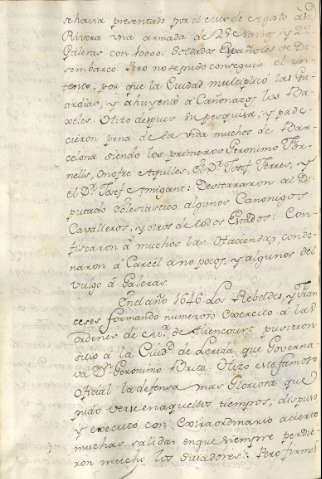 se havia presentado para el
Rivera una armada de 25 Navios y
Galeras con 10000 Soldados Españoles de De
sembarco. Pero no se pudo conseguir el in
tento, por que la Ciudad multiplicó las Gu
ardias, y ahuyentó à Cañonazos los Ba
xeles. Hizo despues su pesquisa, y pade
cieron pena de la vida muchos de Bar
celona siendo los primeros Geronimo For
nells, Onofre Aquiles, el Dr. Josef Ferrer, y
el Dr. Josef Amigant: Desterraron al Di
putado Eclesiastico algunos Canonigos
Cavalleros, y otros de todos Estados: Con
fiscaron à muchos las Haciendas, conde
naron à Carcel à no pocos, y algunos del
vulgo à Galeras.
En el año 1646 los Rebeldes, y Fran
ceses formando numeroso Exercito à las
ordenes de pusieron
sitio à la Ciud.d de Lerida, que Governa
va Dn. Geronimo Brito. Hizo este famoso
Oficial la defensa mas Gloriosa que
pudo verse en aquellos tiempos, dispuso
y executó con extraordinario acierto
muchas salidas en que siempre perdie
ron mucho los Sitiadores: Pero